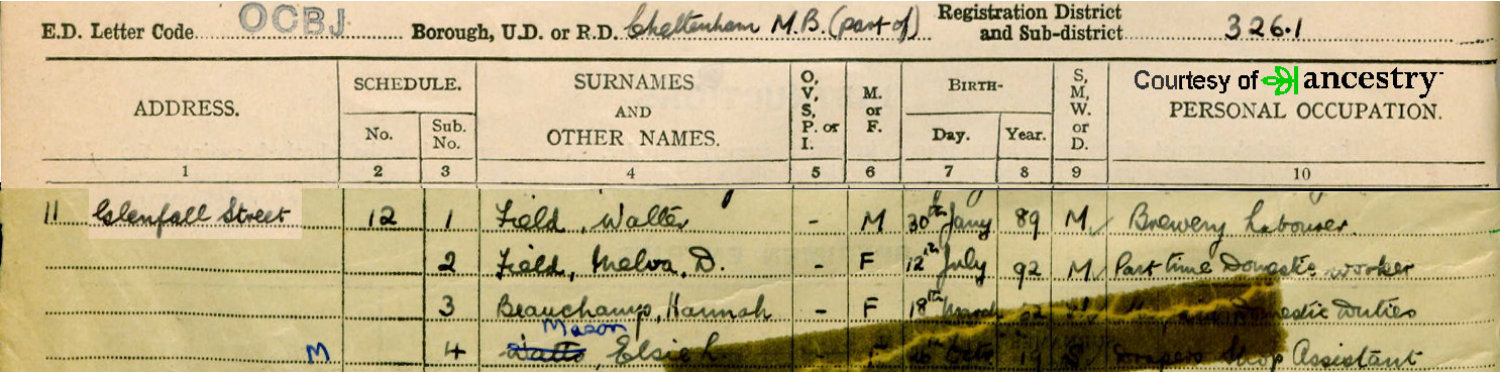 E.D. Letter Code OCBJ Borough, U.D. or R.D. Cheltenham M.B. (part of) Registration District and Sub-district 326.1
ADDRESS. SCHEDULE. No. Sub. No. SURNAMES AND OTHER NAMES. O, V, S, P. or I. M. or F. BIRTH- Day. Year. S, M, W. or D. Courtesy of ancestry PERSONAL OCCUPATION.
1 2 3 4 5 6 7 8 9 10
11 Glenfall Street 12 1 Field, Walter - M 30th Jany 89 M Brewery Labourer.
2 Field, Melva, D. - F 12th July 92 M Part time Domestic worker
3 Beauchamp, Hannah - F 18th March Domestic Duties
Mason
M 4 Watts, Elsie L. Drapers Shop Assistant